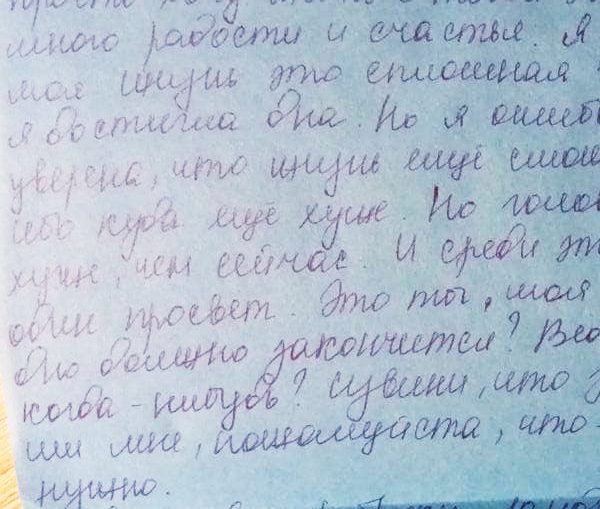 просто хочу
много радости и счастья. Я
моя жизнь это сплошная
я достигла дна. Но я ошиб
уверена, что жизнь ещё смож
ибо куда ещё хуже. Но голов
хуже, чем сейчас. И среди эт
один просвет. Это ты, моя
оно должно закончится? Вед
когда-нибудь? Извини, что
ши мне, пожалуйста, что
нужно.